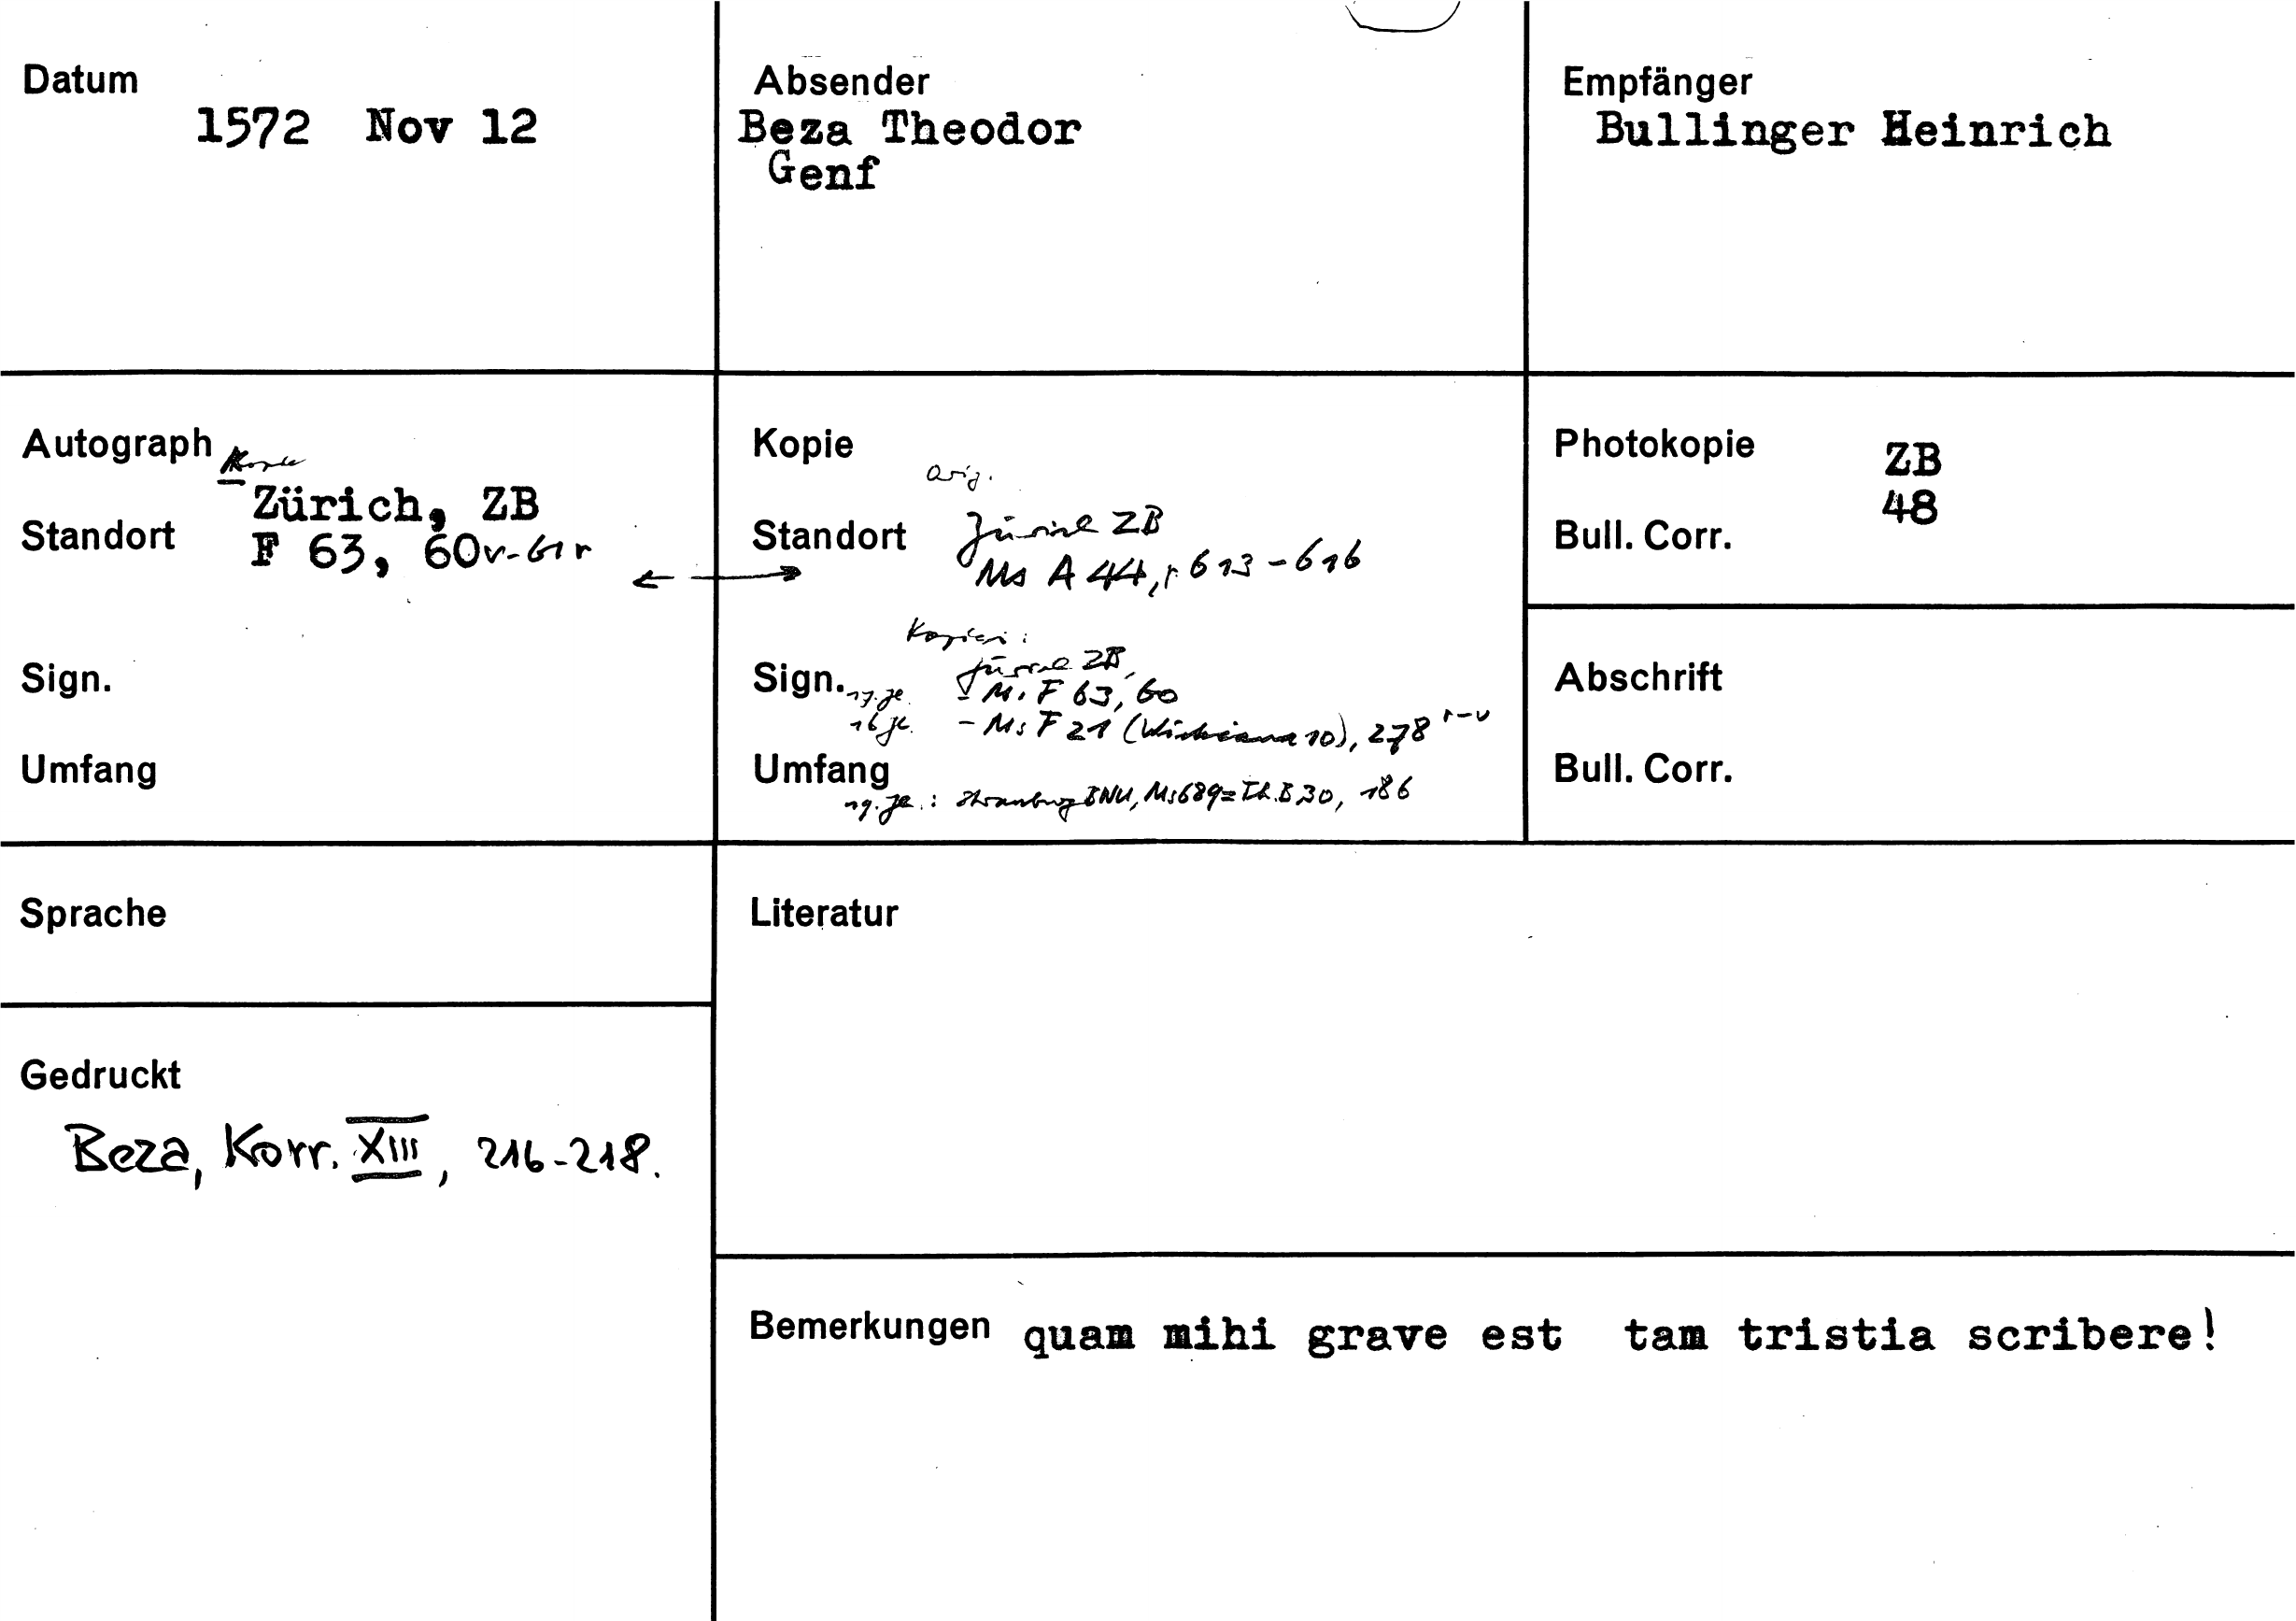 Datum
1572 Nov 12
Absender
Beza Theodor
Genf
Empfänger
Bullinger Heinrich
Autograph
Kopie
Standort
Zürich, ZB
F 63, 60v-61r
Sign.
Umfang
Kopie
Orig.
Standort
Zürich ZB
Ms A 44, 613-616
Kopien:
Sign.
Zürich ZB,
17. Jh. - Ms F 63, 60
16 Jh. - Ms F 21 (Wickiana 10), 278 r-v
Umfang
19. Jh.: Strassburg BNU, Ms 689 = Th. B. 30, 186
Photokopie
ZB
48
Bull. Corr.
Abschrift
Bull. Corr.
Sprache
Gedruckt
Beza, Korr. XIII, 216-218.
Literatur
Bemerkungen
quam mihi grave est tam tristia scribere!